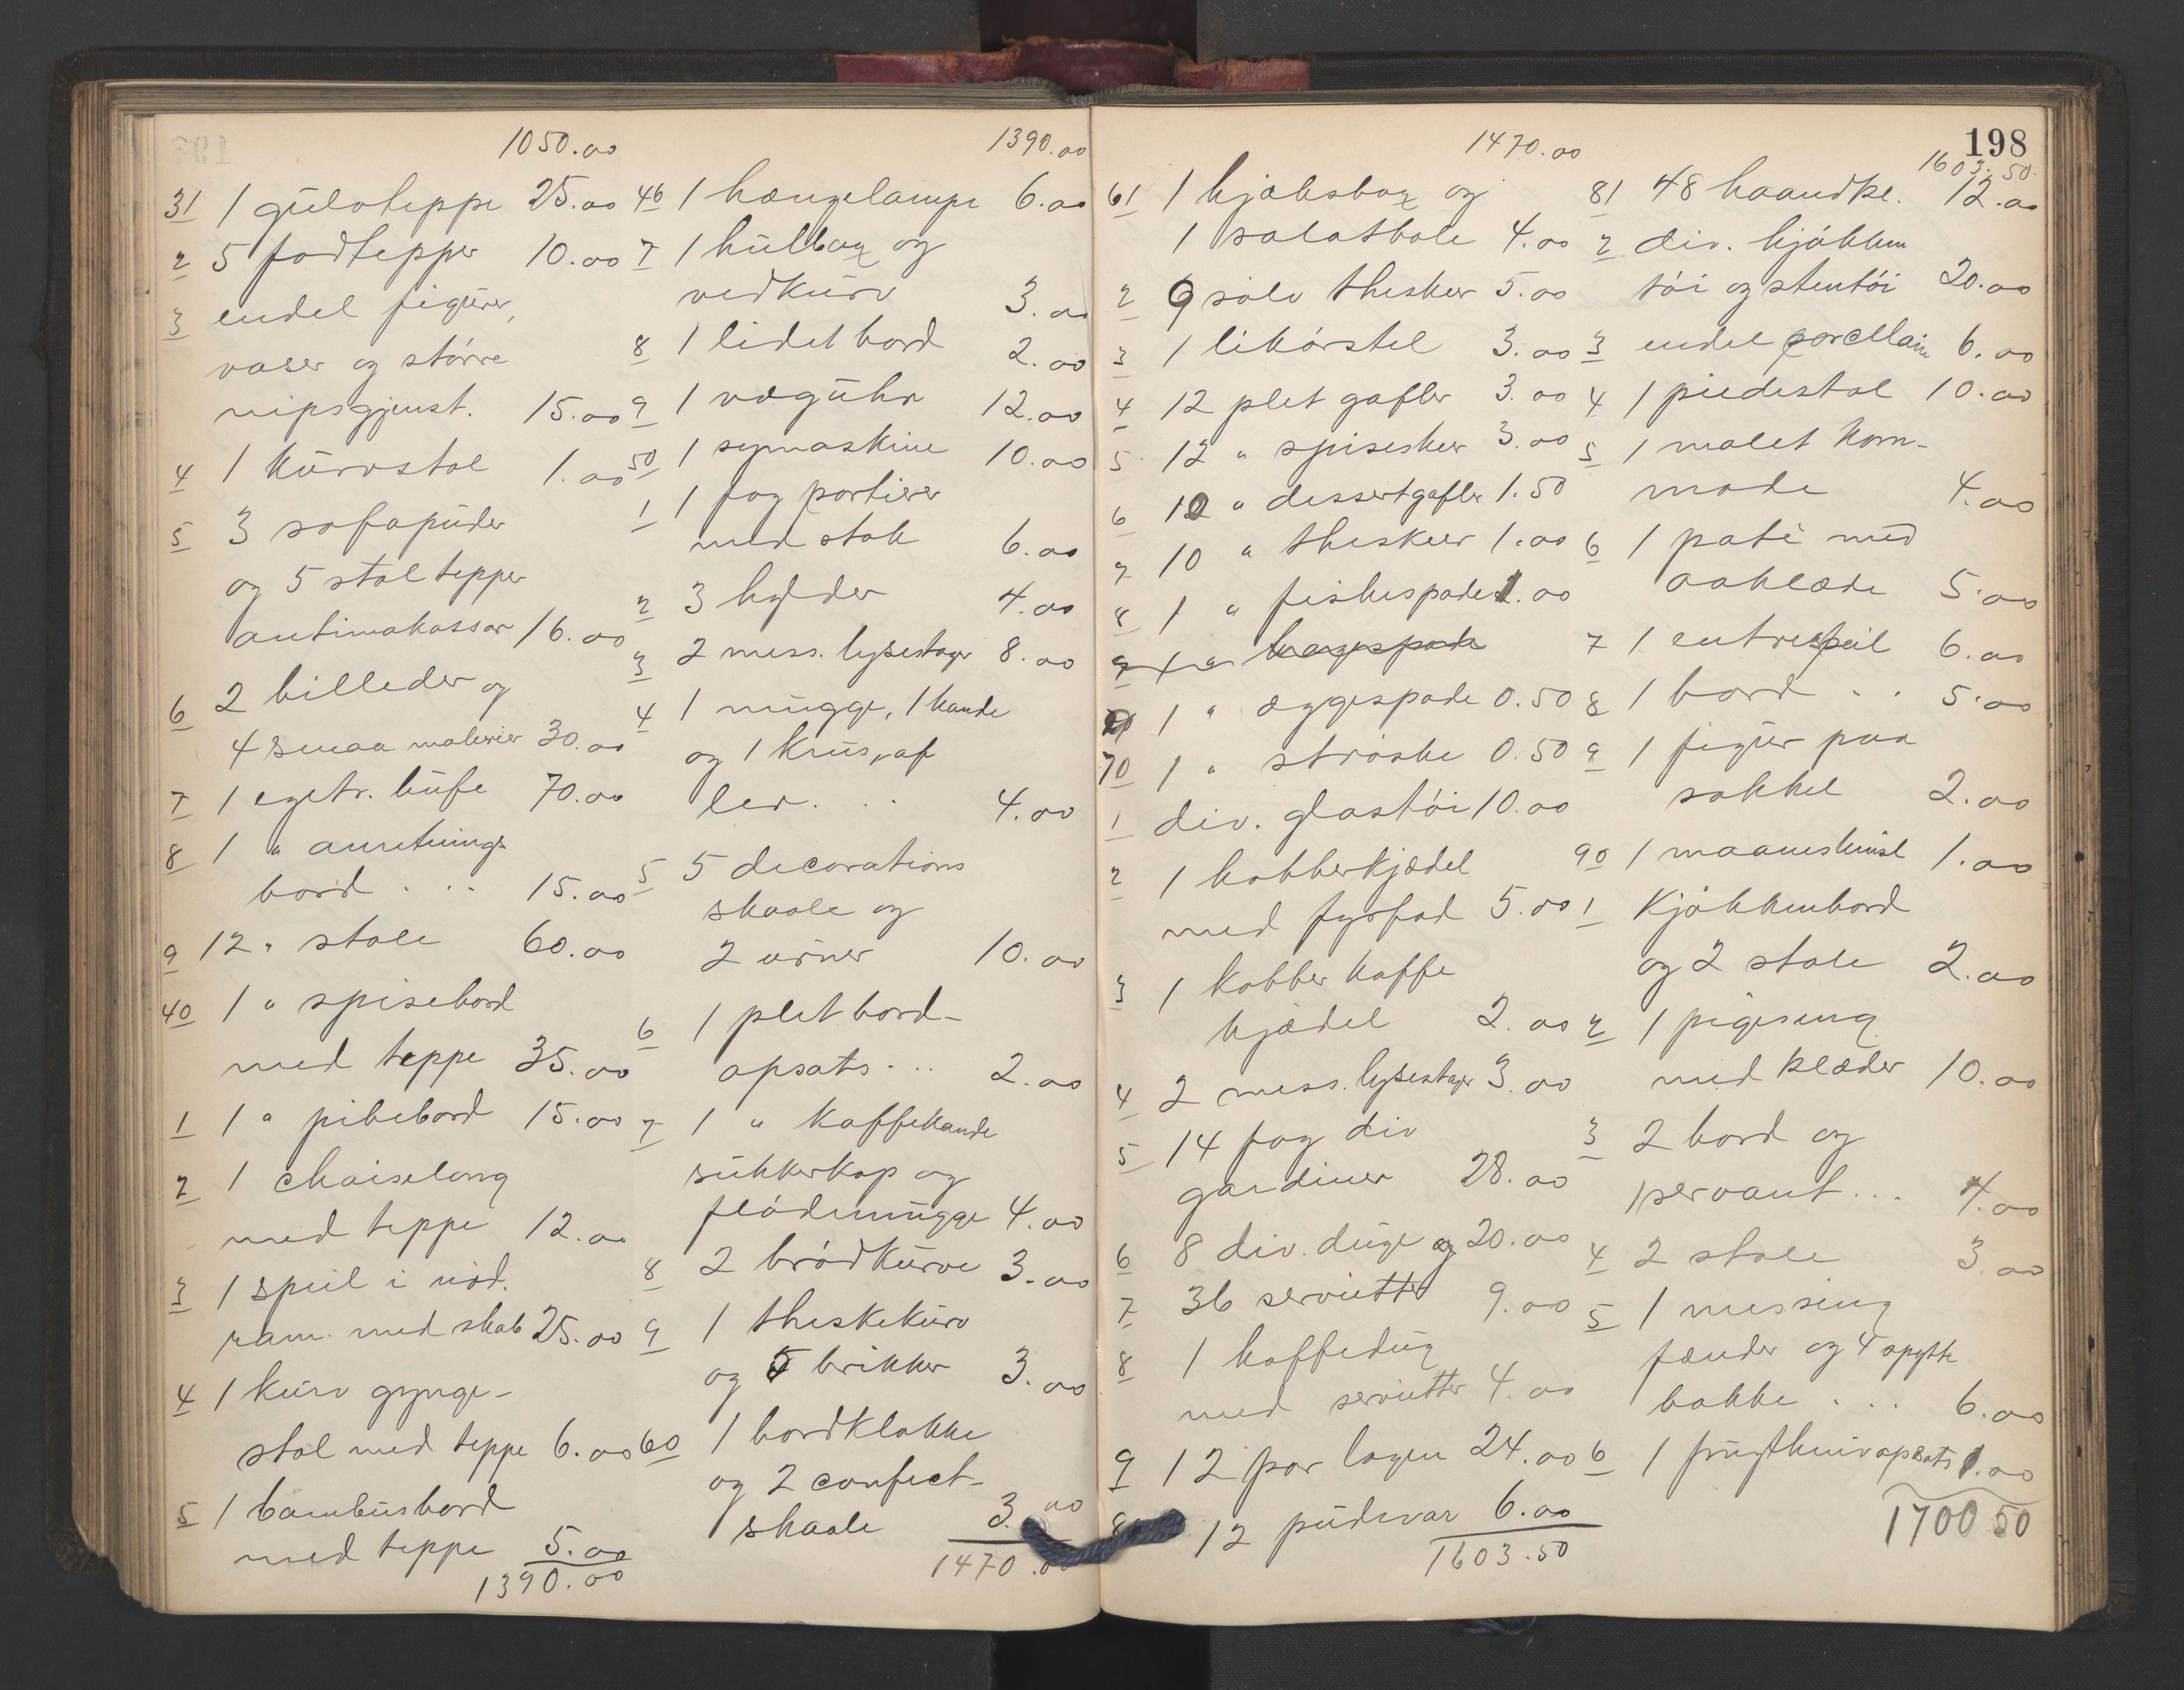 1050.00
31 1 gülvteppe 25.00
2 5 fodtepper 10.00
3 endel figürer,
vaser og större
nipsgjenst. 15.00
4 1 kürvstol 1.00
5 3 sofapüder
og 5 stoltepper
antimakassar 16.00
6 2 billeder og
4 smaa malerier 30.00
7 1 egetr. büfe 70.00
8 1 " anretnings
bord . . . 15.00
9 12 " stole 60.00
40 1 " spisebord
med teppe 35.00
1 1 " pibebord 15.00
2 1 chaiselong
med teppe 12.00
3 1 speil i nöd.
ram. med skab 25.00
4 1 kürv gynge-
stol med teppe 6.00
5 1 bambüsbord
med teppe 5.00
1390.00
1390.00
46 1 hængelampe 6.00
7 1 külbox og
vedkürv 3.00
8 1 lidet bord 2.00
9 1 vægühr 12.00
50 1 symaskine 10.00
1 1 fag portierer
med stok 6.00
2 3 hylder 4.00
3 2 mess. lysestager 8.00
4 1 mügge, 1 kande
og 1 krüs, af
ler. . . 4.00
5 5 decorations
skaale og
2 ürner 10.00
6 1 plet bord-
opsats . . . 2.00
7 1 " kaffekande
sükkerkop og
flödemügge 4.00
8 2 brödkürve 3.00
9 1 theskekürv
og 5 brikker 3.00
60 1 bordklokke
og 2 confect-
skaale 3.00
1470.00
198
1470.00
61 1 kjæksbox og
1 salatbole 4.00
2 9 sölv theskeer 5.00
3 1 likörstel 3.00
4 12 plet gafler 3.00
5 12 " spiseskeer 3.00
6 12 " dessertgafler 1.50
7 10 " theskeer 1.00
8 1 " fiskespade 1.00
9 1 " kagespade
1 " æggespade 0.50
70 1 " ströske 0.50
1 div. glastöi 10.00
2 1 kobberkjædel
med fyrfad 5.00
3 1 kobber kaffe
kjædel 2.00
4 2 mess. lysestager 3.00
5 14 fag div
gardiner 28.00
6 8 div. düge og 20.00
7 36 servietter 9.00
8 1 kaffedüg
med servietter 4.00
9 12 par lagen 24.00
80 12 püdevar 6.00
1603.50
1603.50
81 48 haandkl. 12.00
2 div. kjökken
töi og stentöi 20.00
3 endel porcellain 6.00
4 1 piedestal 10.00
5 1 malet kom-
mode 4.00
6 1 paté med
aaklæde 5.00
7 1 entrespeil 6.00
8 1 bord . . 5.00
9 1 figür paa
sokkel 2.00
90 1 maaneskinsl 1.00
1 Kjökkenbord
og 2 stole 2.00
2 1 pigeseng
med klæder 10.00
3 2 bord og
1 servant . . . 4.00
4 2 stole 3.00
5 1 messing
fænder og 4 spytte
bakke . . . 6.00
6 1 frügtknivopsats 1.00
1700 50